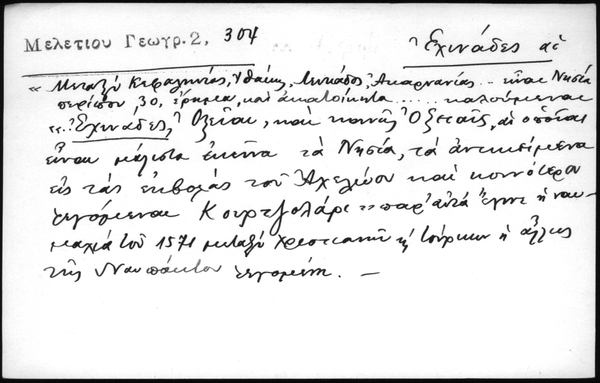 Μελετίου Γεωγρ. 2, 304
Ἐχινάδες αἱ
« Μεταξὺ Κεφαλληνίας, Ἰθάκης, Λευκάδος, Ἀκαρνανίας .. εἶναι Νησία
περίπου 30, ἔρημα, καὶ ἀκατοίκητα ..... καλούμεναι
« .. Ἐχινάδες, Ὀξεῖαι, καὶ κοινῶς Ὀξειαῖς, αἱ ὁποῖαι
εἶναι μάλιστα ἐκεῖνα τὰ Νησία, τὰ ἀντικείμενα
εἰς τὰς ἐκβολὰς τοῦ Ἀχελώου καὶ κοινότερα
λεγόμεναι Κουρτζολάρι » παρ' αὐτὰ ἔγινε ἡ ναυ-
μαχία τοῦ 1571 μεταξὺ χριστιανῶν κ Τούρκων ἡ ἄλλως
τῆς Ναυπάκτου λεγομένη. —